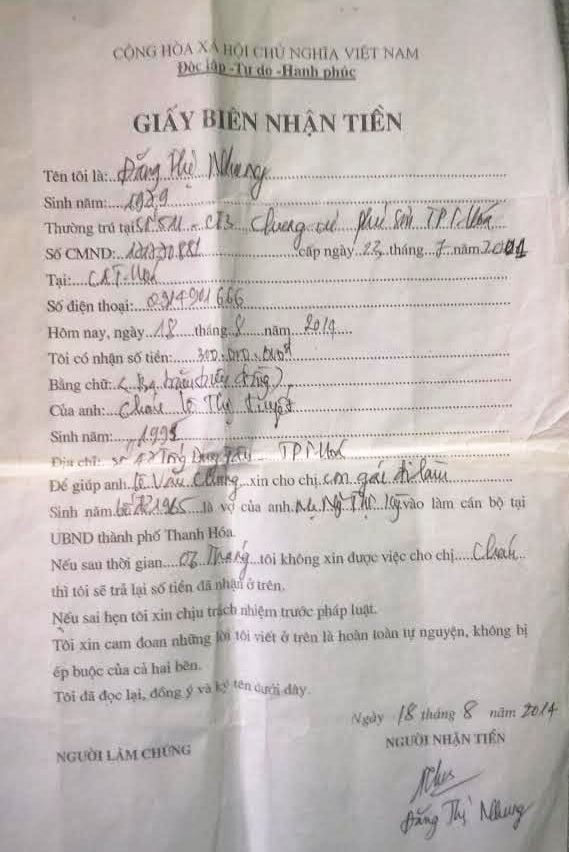 CỘNG HÒA XÃ HỘI CHỦ NGHĨA VIỆT NAM
Độc lập -Tự do -Hạnh phúc
GIẤY BIÊN NHẬN TIỀN
Tên tôi là: Đặng Thị Nhung
Sinh năm: 1979
Thường trú tại SN 511 - CT3 Chung cư phú sơn TP T.Hoá
Số CMND: cấp ngày 23 tháng 7 năm 2011
Tại: CAT-Hoá
Số điện thoại: 0914901666
Hôm nay, ngày 18 tháng 8 năm 2014
Tôi có nhận số tiền: 300.000.000đ
Bằng chữ: (Ba trăm triệu đồng)
Của anh: Cháu lê Thị tuyết
Sinh năm: 1991
Địa chỉ: TP T.Hoá
Để giúp anh lê Văn xin cho chị con gái đi làm
Sinh năm 1965 là vợ của anh Mẹ Ngô Thị vào làm cán bộ tại
UBND thành phố Thanh Hóa.
Nếu sau thời gian 03 Tháng tôi không xin được việc cho chị Cháu
thì tôi sẽ trả lại số tiền đã nhận ở trên.
Nếu sai hẹn tôi xin chịu trách nhiệm trước pháp luật.
Tôi xin cam đoan những lời tôi viết ở trên là hoàn toàn tự nguyện, không bị
ép buộc của cả hai bên.
Tôi đã đọc lại, đồng ý và ký tên dưới đây.
Ngày 18 tháng 8 năm 2014
NGƯỜI LÀM CHỨNG
NGƯỜI NHẬN TIỀN
Đặng Thị Nhung